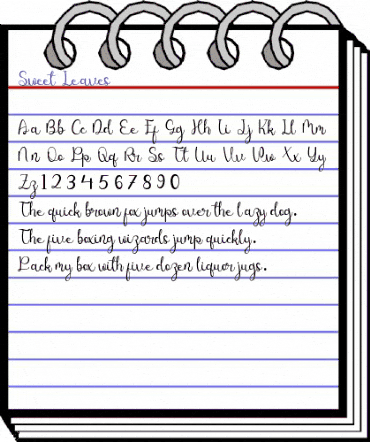 Sweet Leaves
Aa Bb Cc Dd Ee Ff Gg Hh Ii Jj Kk Ll Mm
Nn Oo Pp Qq Rr Ss Tt Uu Vv Ww Xx Yy
Zz 1 2 3 4 5 6 7 8 9 0
The quick brown fox jumps over the lazy dog.
The five boxing wizards jump quickly.
Pack my box with five dozen liquor jugs.